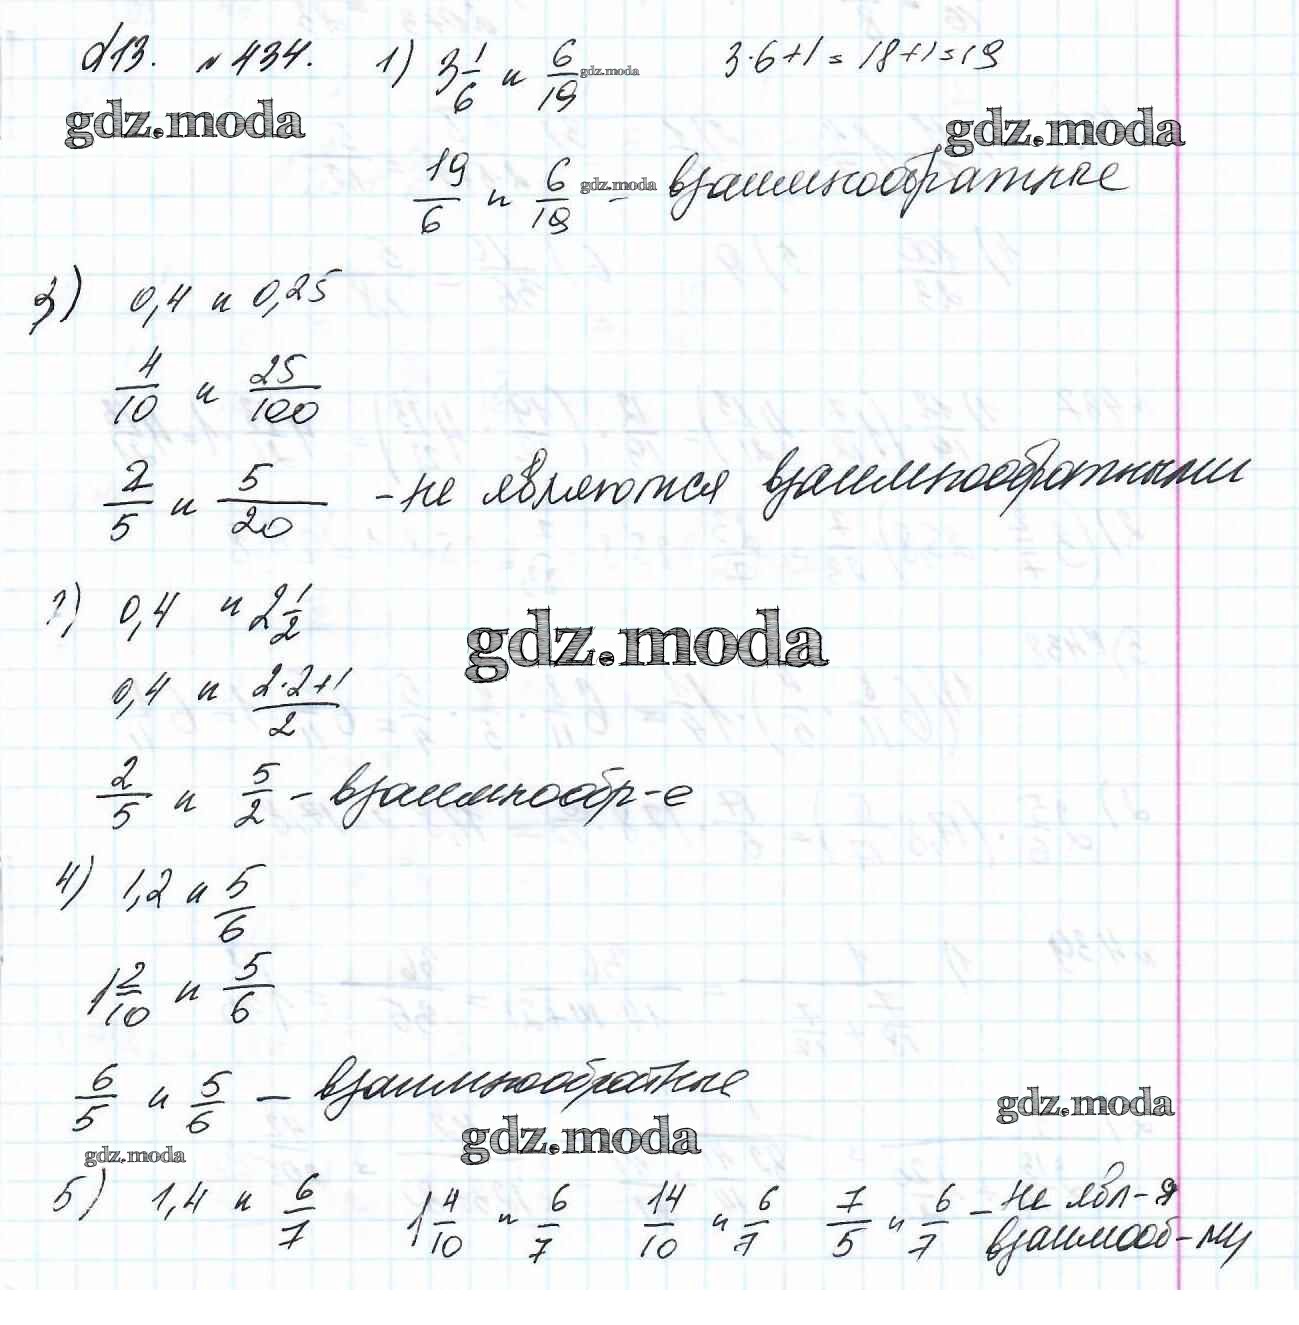 d13. №434. 1) 3 1/6 и 6/19 gdz.moda 3·6+1=18+1=19
gdz.moda gdz.moda
19/6 и 6/19 gdz.moda - взаимнообратные
3) 0,4 и 0,25
4/10 и 25/100
2/5 и 5/20 - не являются взаимнообратными
2) 0,4 и 2 1/2
gdz.moda
0,4 и 2·2+1/2
2/5 и 5/2 - взаимнообр-е
4) 1,2 и 5/6
1 2/10 и 5/6
6/5 и 5/6 - взаимнообратные
gdz.moda
gdz.moda
gdz.moda
5) 1,4 и 6/7 1 4/10 и 6/7 14/10 и 6/7 7/5 и 6/7 - не явл-я
взаимооб-ми